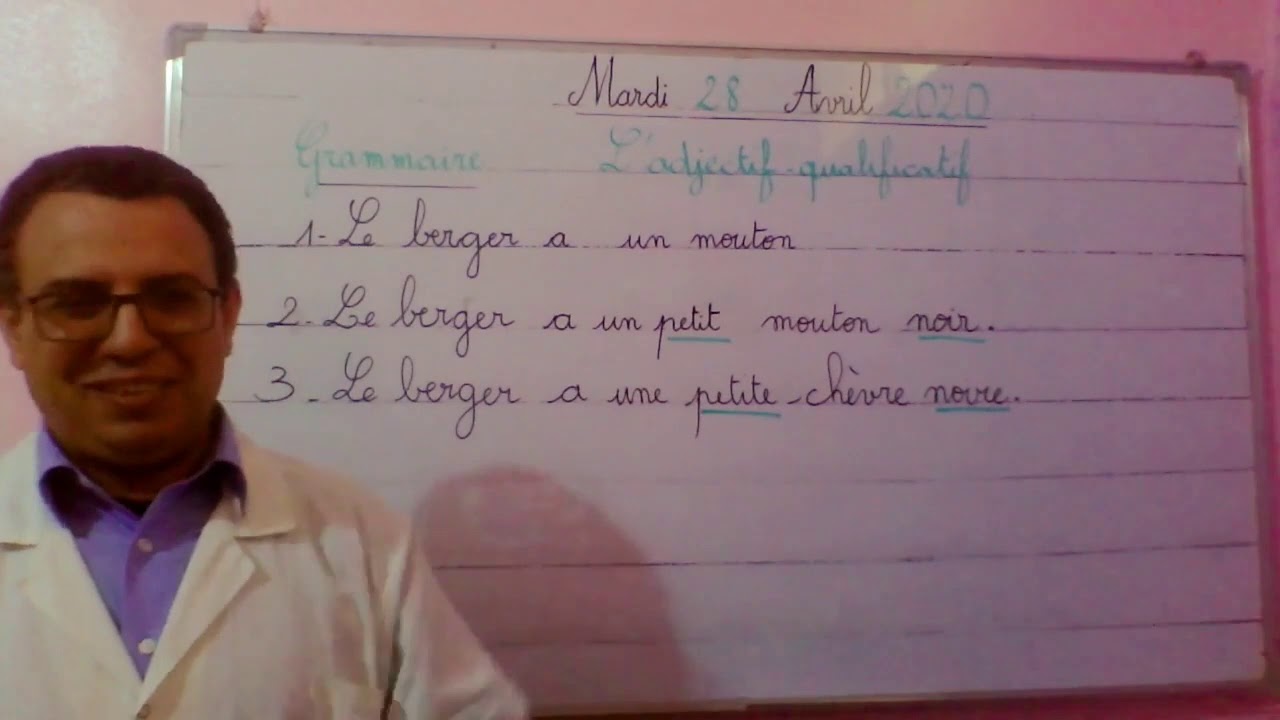 Mardi 28 Avril 2020
Grammaire L'adjectif qualificatif
1- Le berger a un mouton
2- Le berger a un petit mouton noir.
3- Le berger a une petite chèvre noire.